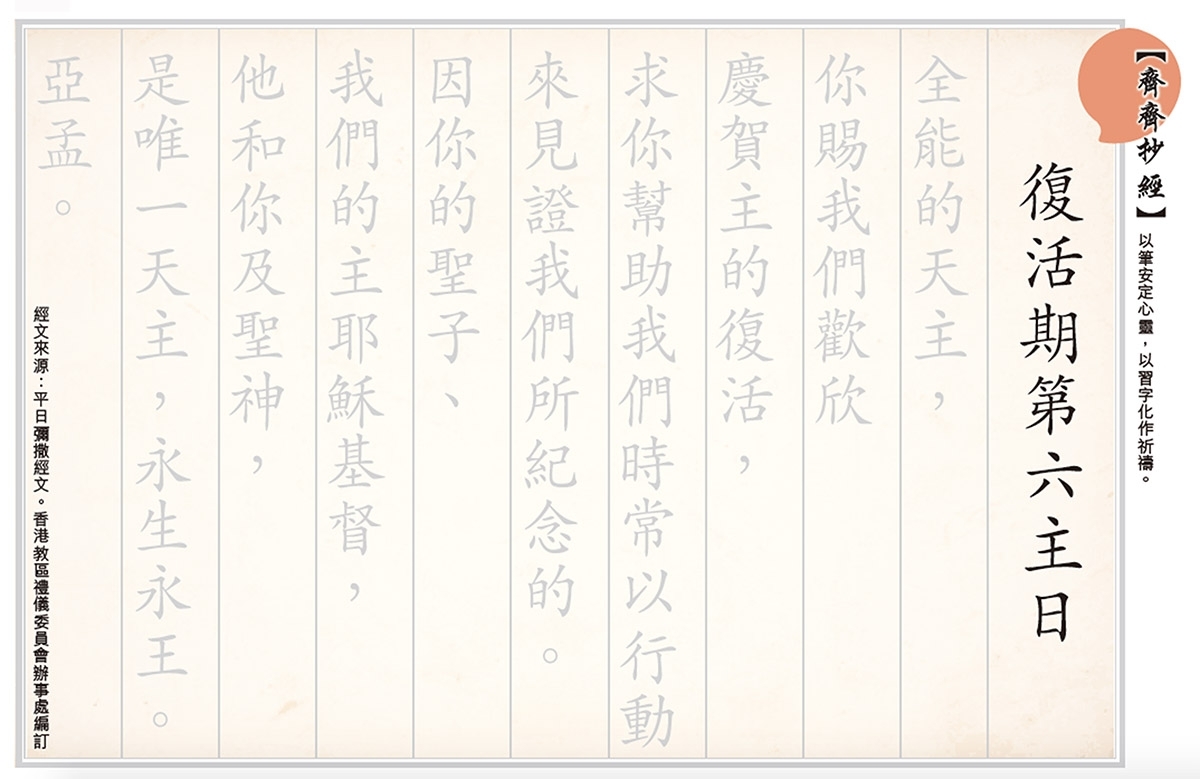 【齊齊抄經】以筆安定心靈，以習字化作祈禱。
復活期第六主日
全能的天主，
你賜我們歡欣
慶賀主的復活，
求你幫助我們時常以行動
來見證我們所紀念的。
因你的聖子、
我們的主耶穌基督，
他和你及聖神，
是唯一天主，永生永王。
亞孟。
經文來源：平日彌撒經文。香港教區禮儀委員會辦事處編訂